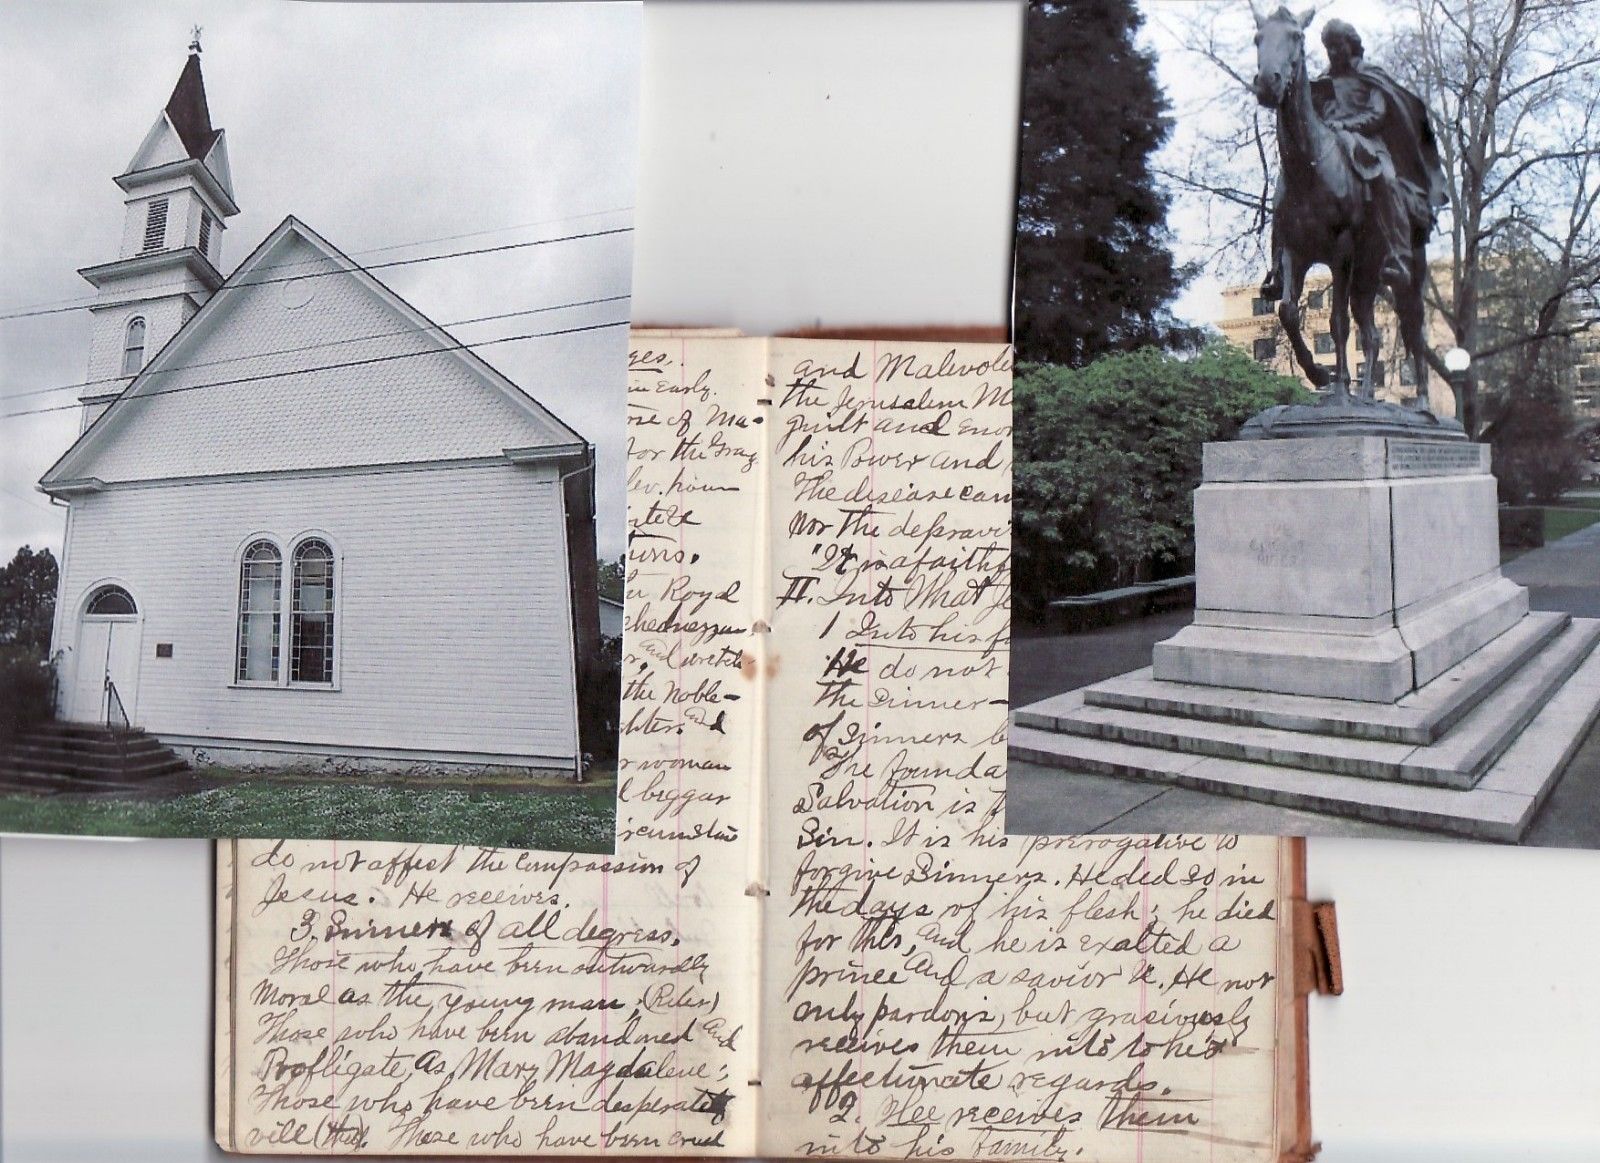 ges.
in Early.
rse of Ma-
for the Grag
lev. hour
tions.
Royal
chednezzar
and wretch
the Noble-
hters. and
r woman
l beggar
ircumstan
do not affect the compassion of
Jesus. He receives.
3. Sinners of all degress.
Those who have been outwardly
Moral as the young man, (Ruler)
Those who have been abandoned and
Profligate, as Mary Magdalene;
Those who have been desperately
vill (thief). Those who have been cruel
and Malevole
the Jerusalem M
guilt and enor
his Power and
The disease can
Nor the depravi
"It is a faithf
II. Into What Je
1 Into his f
He do not
the Sinner-
of Sinners b
The founda
Salvation is t
Sin. It is his prerogative to
forgive Sinners. He ded so in
the days of his flesh; he died
for this, and he is exalted a
prince and a savior &c. He not
only pardons, but graciously
receives them into to his
affectionate regards.
2. Hee receives them
into his family.